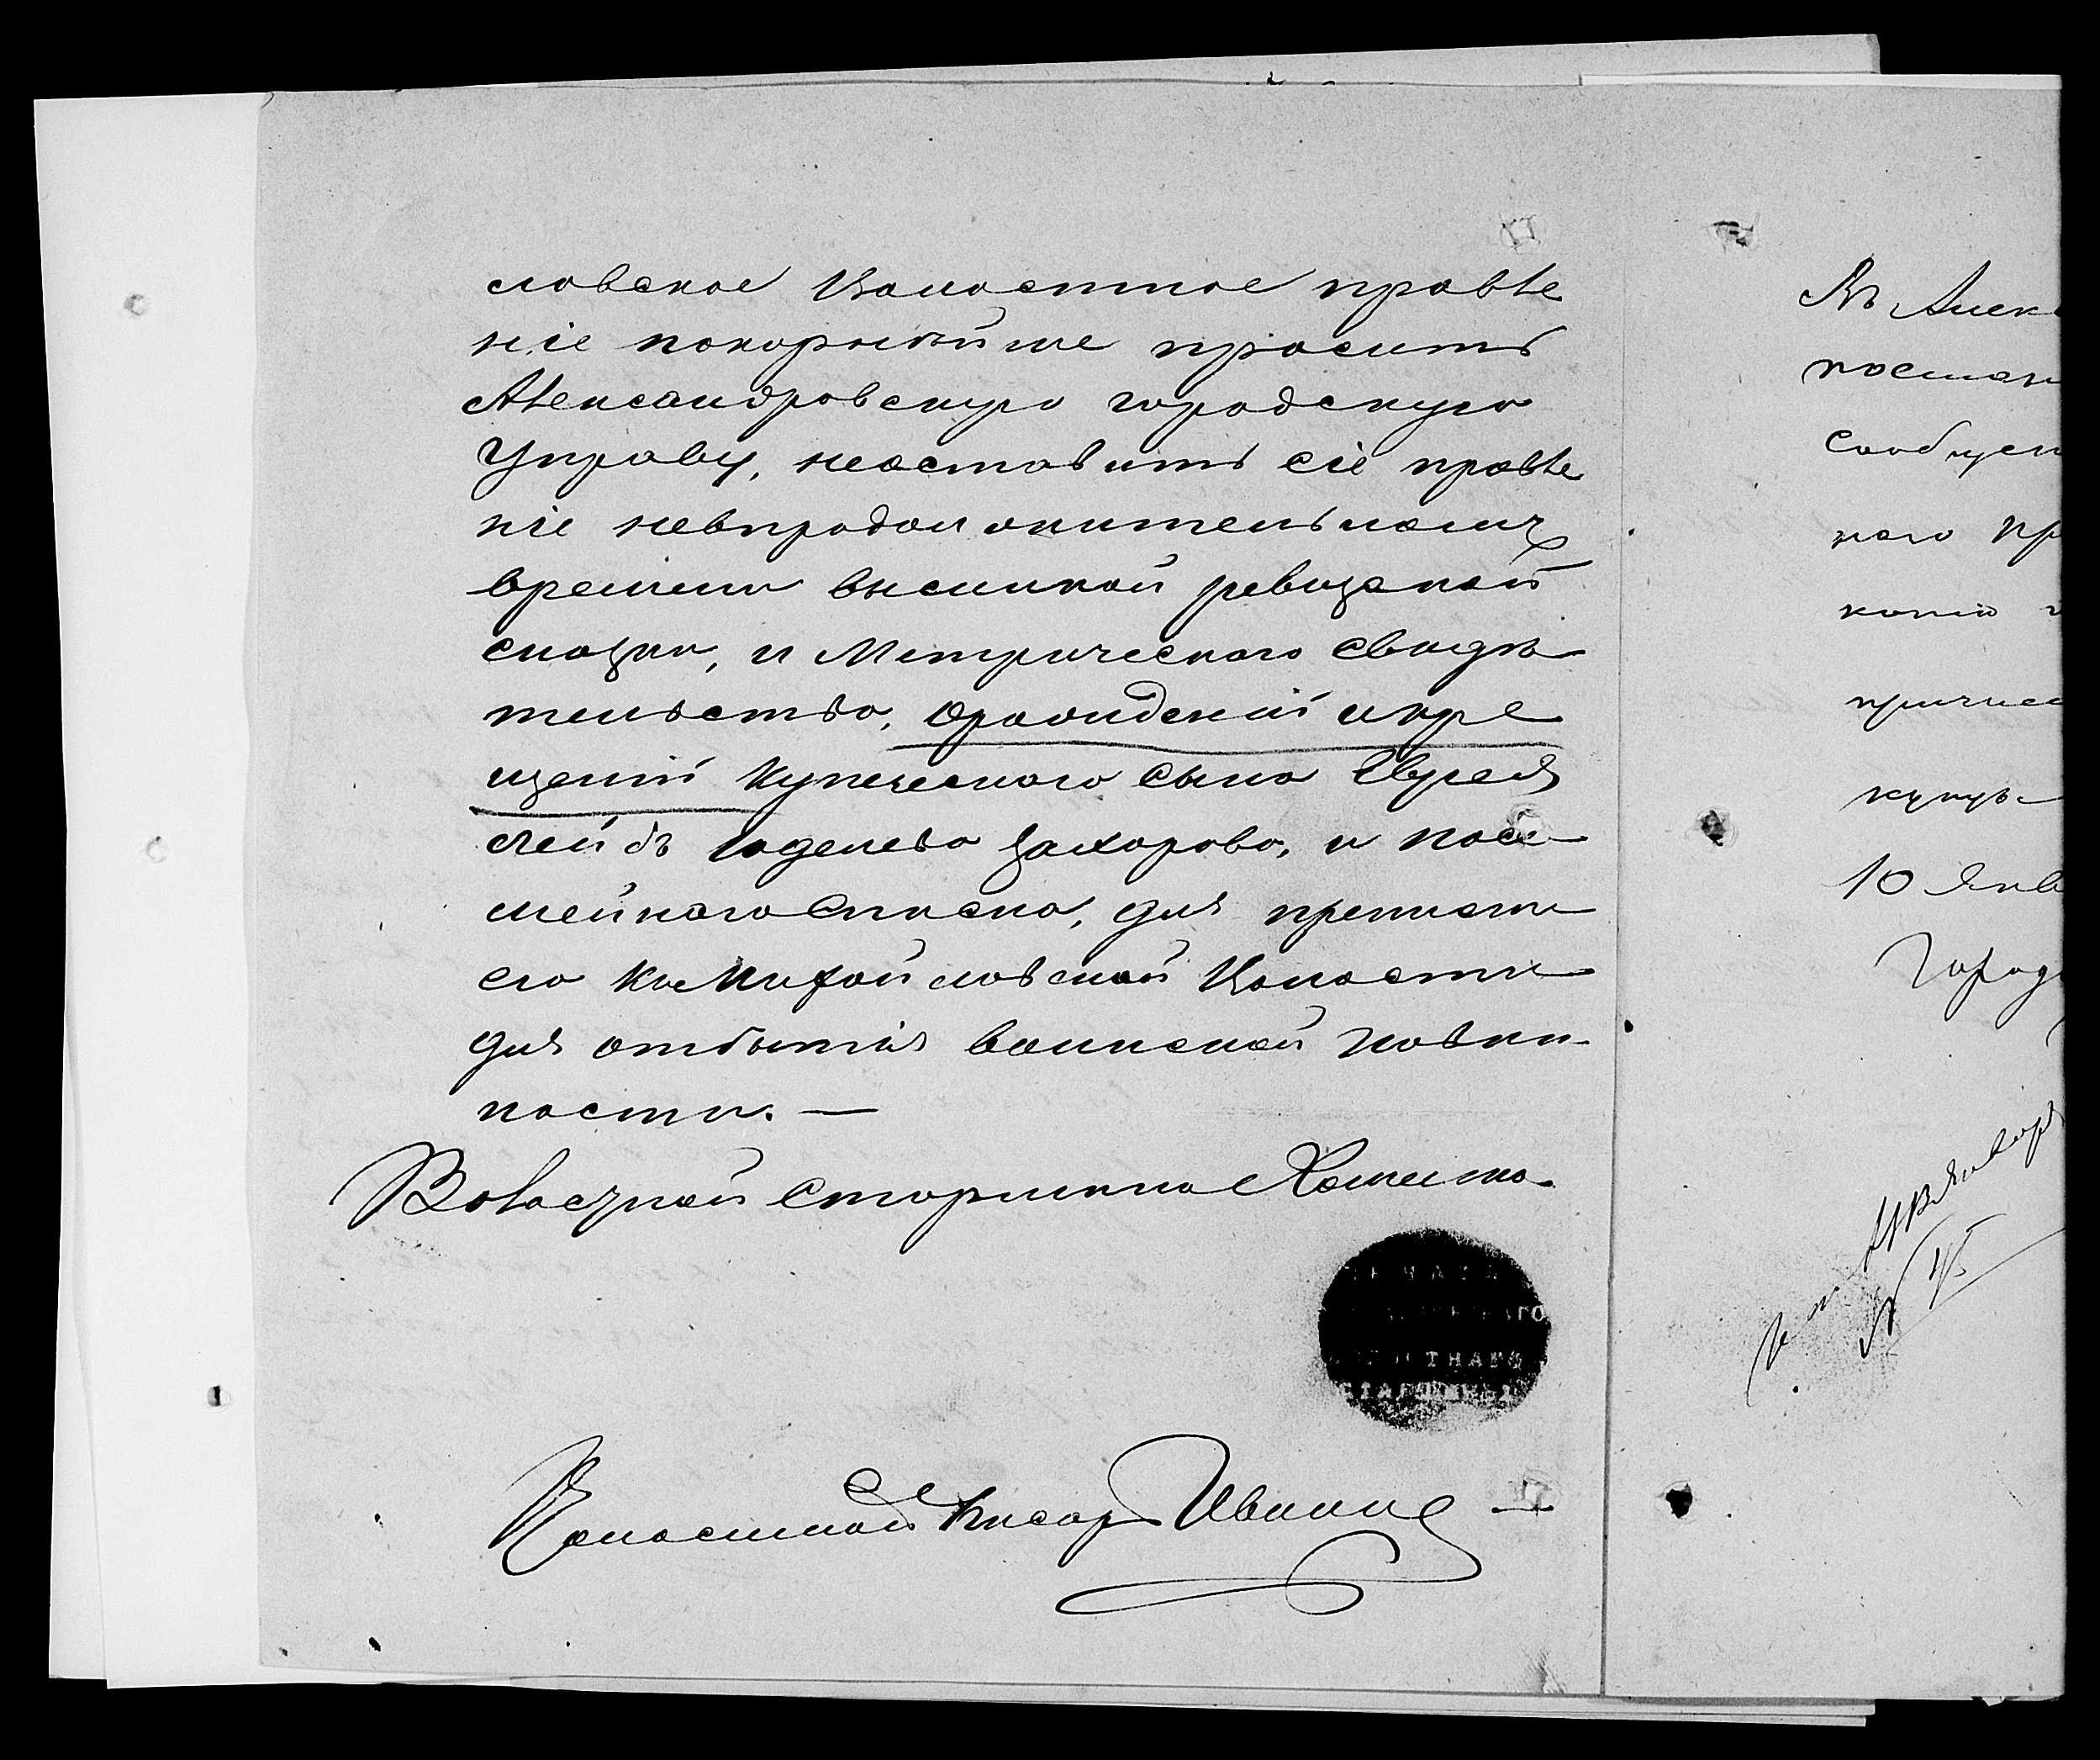 словское Волостное правле
ніе покорнѣйше проситъ
Александровскую городскую
Управу, неоставить сіе правле
ніе невпродолжительномъ
времени высилкой ревизской
сказки, и Метрического свидѣ
тельства, ораожденіи икре
щеніи купеческого сына Еврея
Лейбъ Годелева Захорова, и посе
мейного списка, для преписки
его къ Михайловской Волости
для отбытія воинской повин
ности. —
Волосзной старшина
Волосшной Писарь Ивинъ —
ПЕЧАТЬ
СТАРШИНЫ
Въ Алек
постан
сообщен
ного пр
копію
причис
купъ
10 Янв
Город